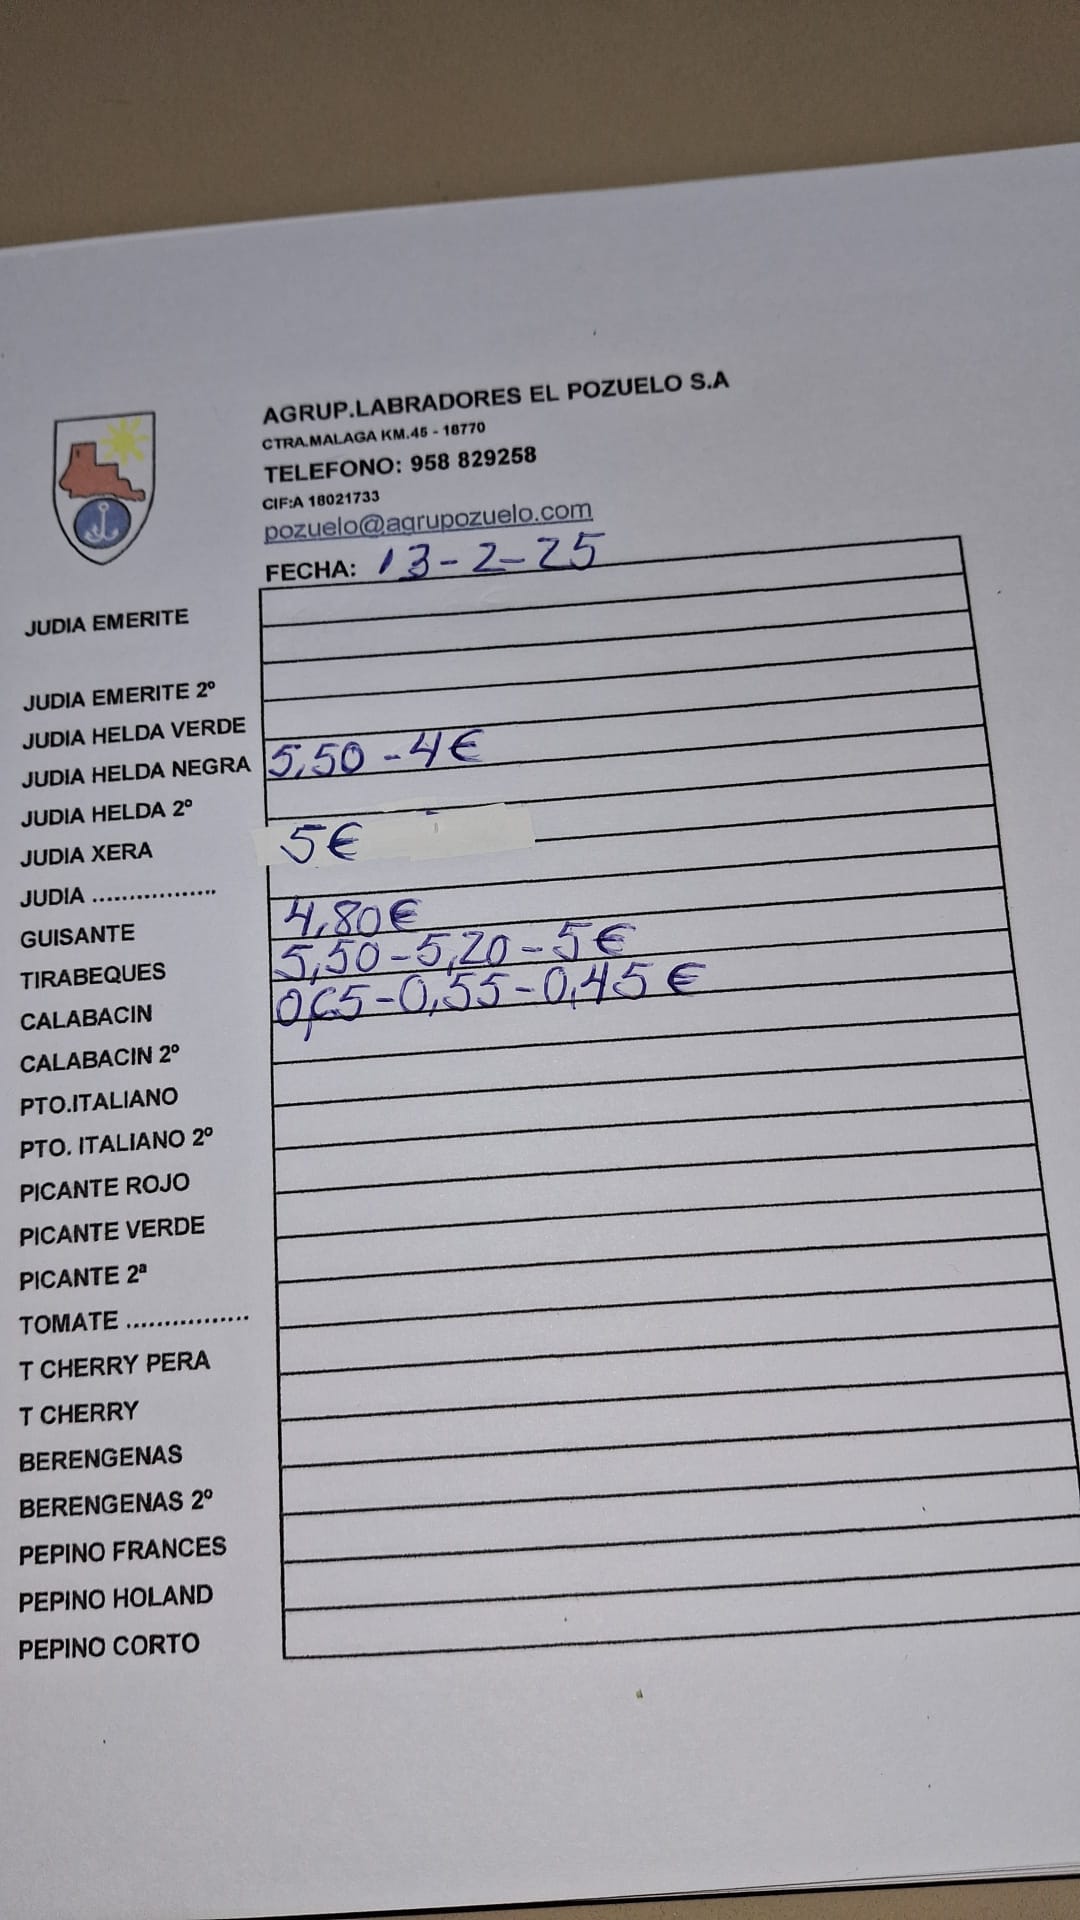 AGRUP.LABRADORES EL POZUELO S.A
CTRA.MALAGA KM.45 - 18770
TELEFONO: 958 829258
CIF:A 18021733
pozuelo@agrupozuelo.com
FECHA: 13-2-25
JUDIA EMERITE
JUDIA EMERITE 2º
JUDIA HELDA VERDE
JUDIA HELDA NEGRA 5,50 - 4€
JUDIA HELDA 2º
JUDIA XERA 5€
JUDIA ..................
GUISANTE 4,80€
TIRABEQUES 5,50-5,20-5€
CALABACIN 0,65-0,55-0,45€
CALABACIN 2º
PTO.ITALIANO
PTO. ITALIANO 2º
PICANTE ROJO
PICANTE VERDE
PICANTE 2ª
TOMATE ................
T CHERRY PERA
T CHERRY
BERENGENAS
BERENGENAS 2º
PEPINO FRANCES
PEPINO HOLAND
PEPINO CORTO